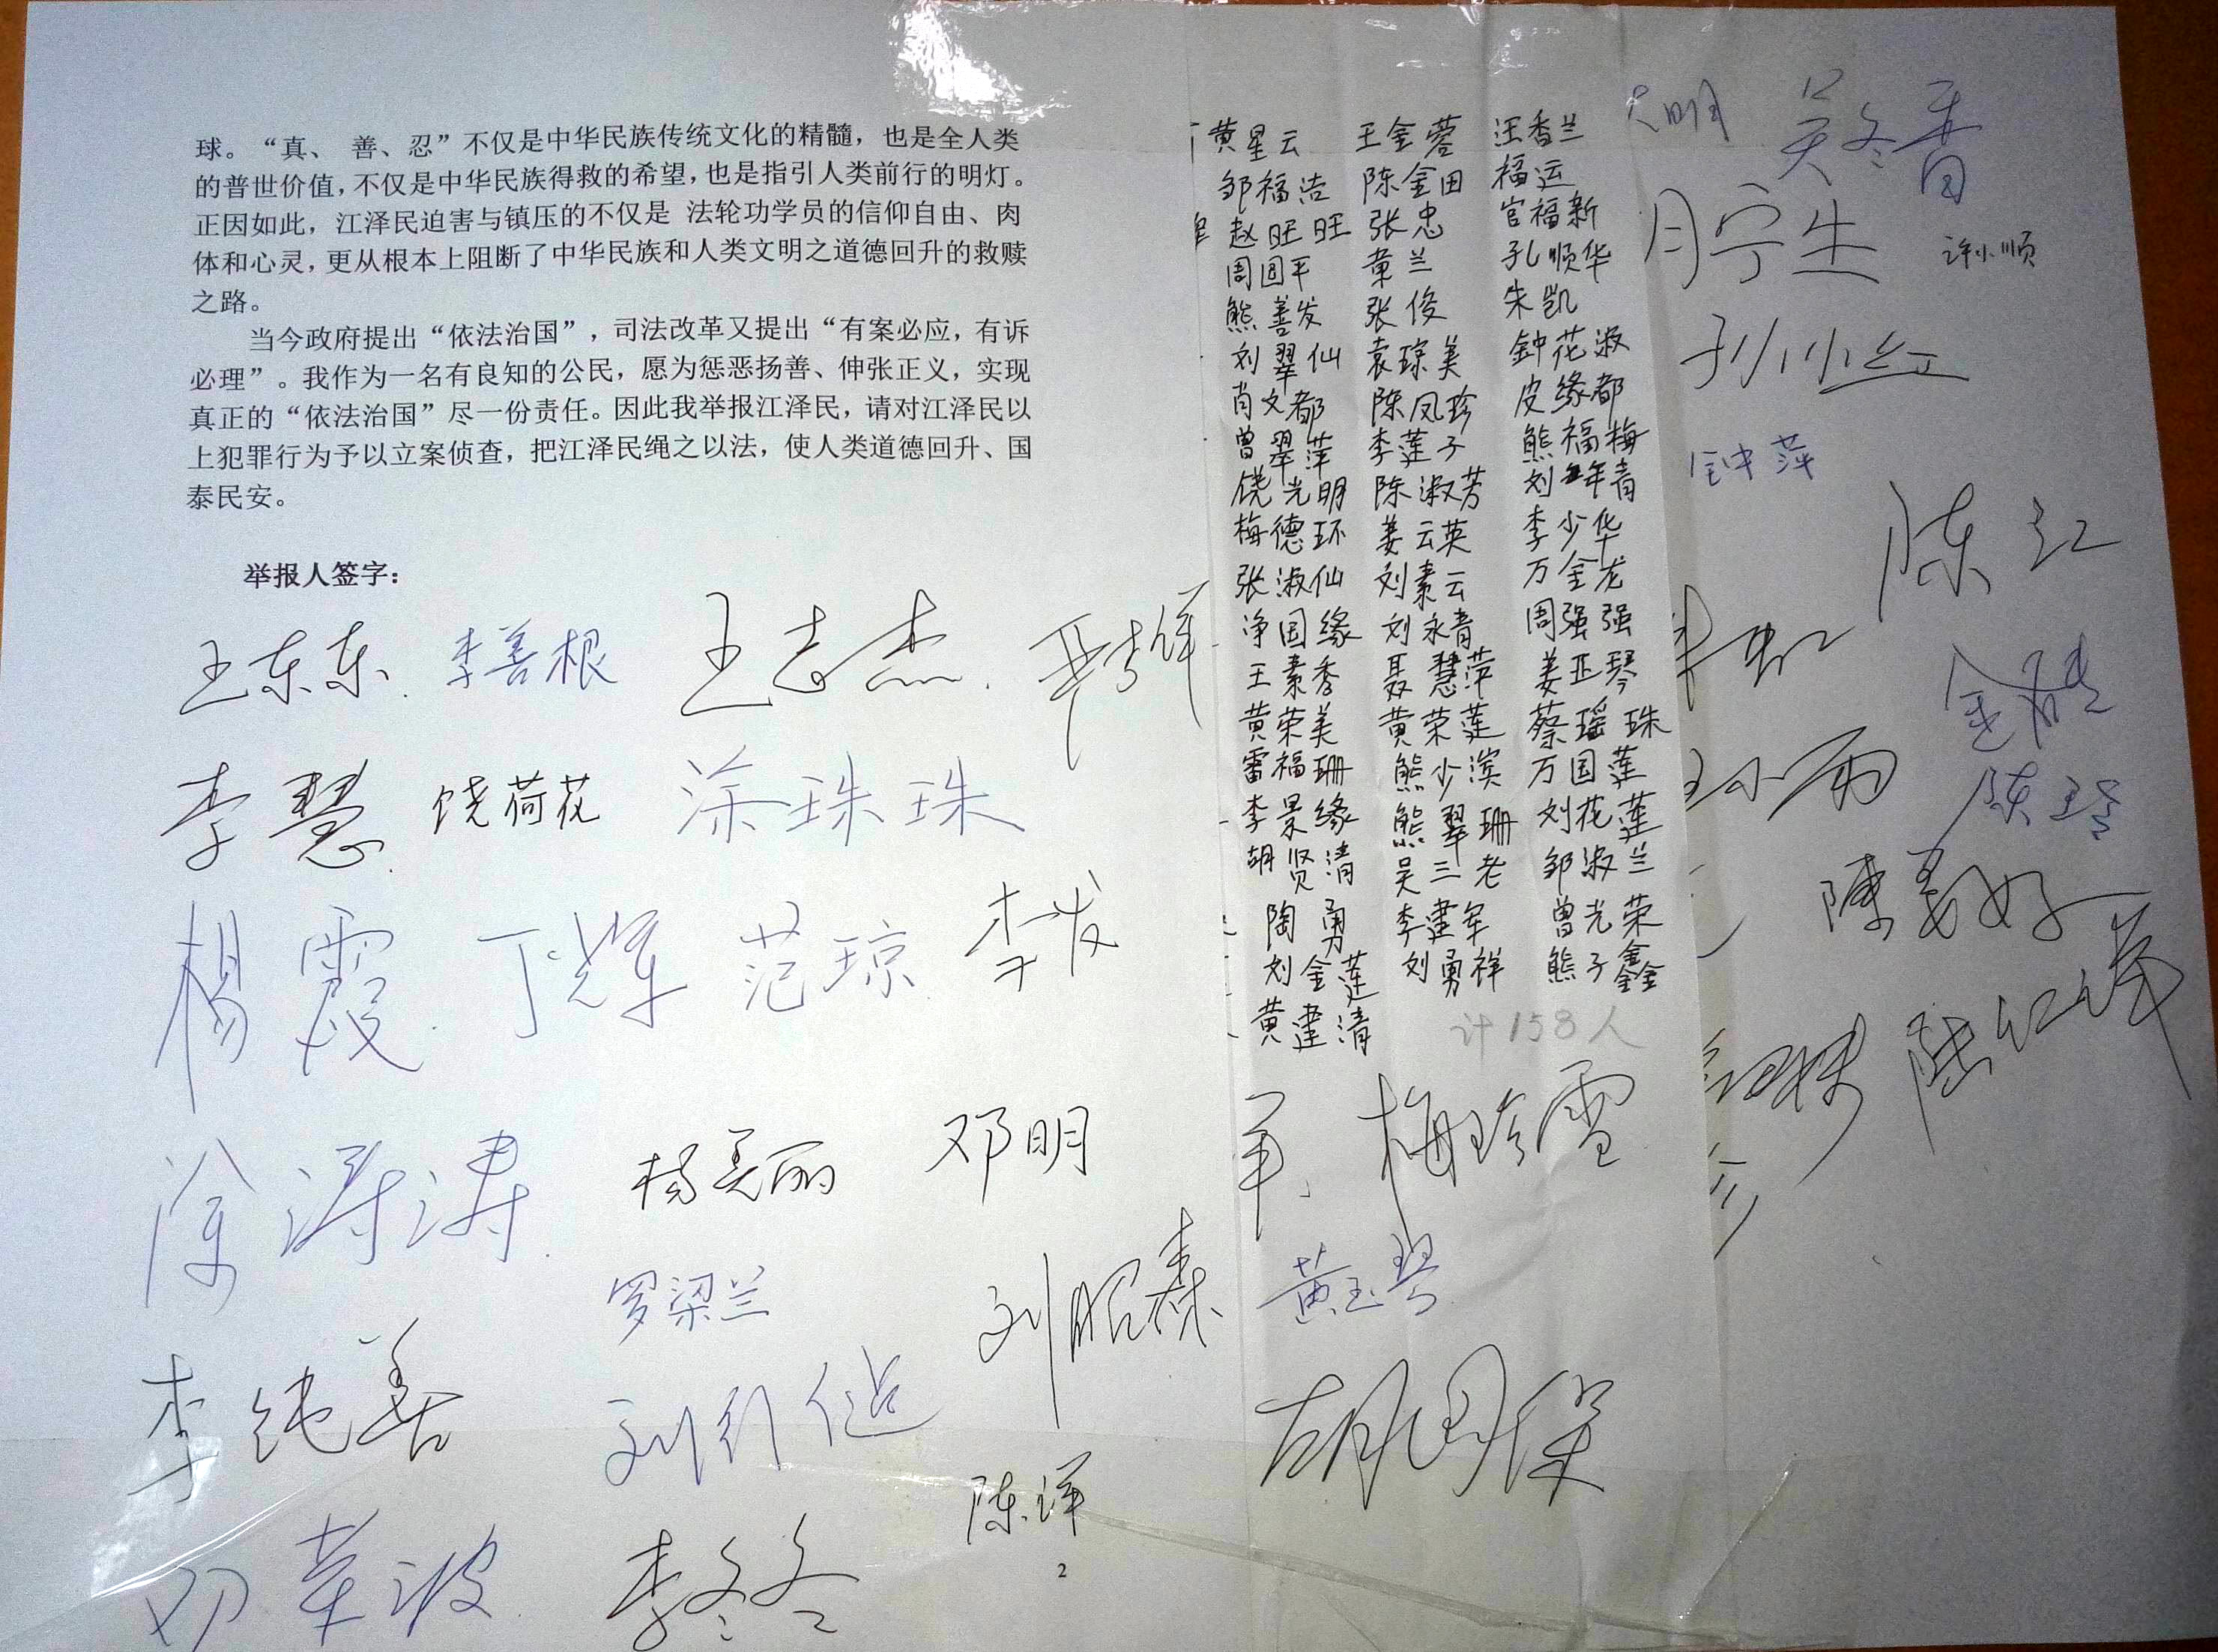 球。“真、 善、忍”不仅是中华民族传统文化的精髓，也是全人类
的普世价值，不仅是中华民族得救的希望，也是指引人类前行的明灯。
正因如此，江泽民迫害与镇压的不仅是 法轮功学员的信仰自由、肉
体和心灵，更从根本上阻断了中华民族和人类文明之道德回升的救赎
之路。
当今政府提出“依法治国”，司法改革又提出“有案必应，有诉
必理”。我作为一名有良知的公民，愿为惩恶扬善、伸张正义，实现
真正的“依法治国”尽一份责任。因此我举报江泽民，请对江泽民以
上犯罪行为予以立案侦查，把江泽民绳之以法，使人类道德回升、国
泰民安。
举报人签字：
王东东 李善根 王志杰
李慧 饶荷花 涂珠珠
杨霞 丁辉 范琼 李发
涂涛涛 杨美丽 邓明
罗梁兰 刘昭森
李纯善
陈洋
邓苹波 李冬冬
2
黄星云 王金蓉 汪香兰
邹福洁 陈金田 福运
赵旺旺 张忠 官福新
周国平 章兰 孔顺华
熊善发 张俊 朱凯
刘翠仙 袁琼美 钟花淑
肖文都 陈凤珍 皮缘都
曾翠萍 李莲子 熊福梅
饶光明 陈淑芳 刘年青
梅德环 姜云英 李少华
张淑仙 刘素云 万金龙
净国缘 刘永青 周强强
王素秀 聂慧萍 姜亚琴
黄荣美 黄荣莲 蔡瑶珠
雷福珊 熊少滨 万国莲
李景缘 熊翠珊 刘花莲
胡贤清 吴三老 邹淑兰
陶勇 李建军 曾光荣
刘金莲 刘勇祥 熊子鑫
黄建清
计158人
梅玲雪
黄玉琴
胡国保
明 吴冬香
宁生 许小顺
孙小红
钟萍
陈江
小雨
陈美好
陆红萍